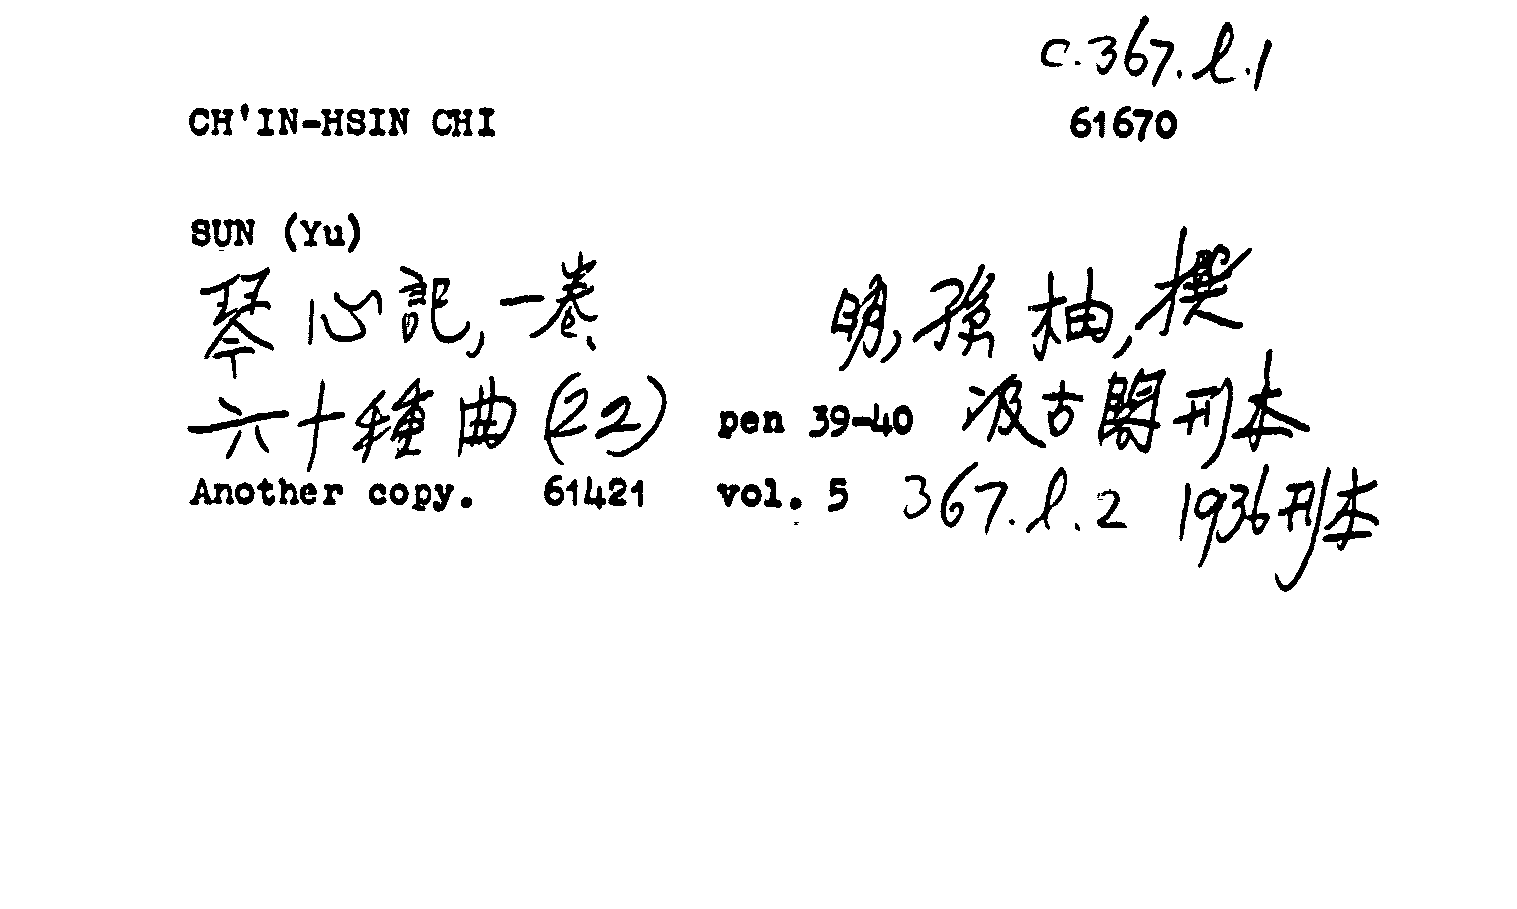 c.367.l.1
CH'IN-HSIN CHI 61670
SUN (Yu)
琴心記, 一卷、 明, 孫柚, 撰
六十種曲(22) pen 39-40 汲古閣刊本
Another copy. 61421 vol. 5 367.l.2 1936刊本